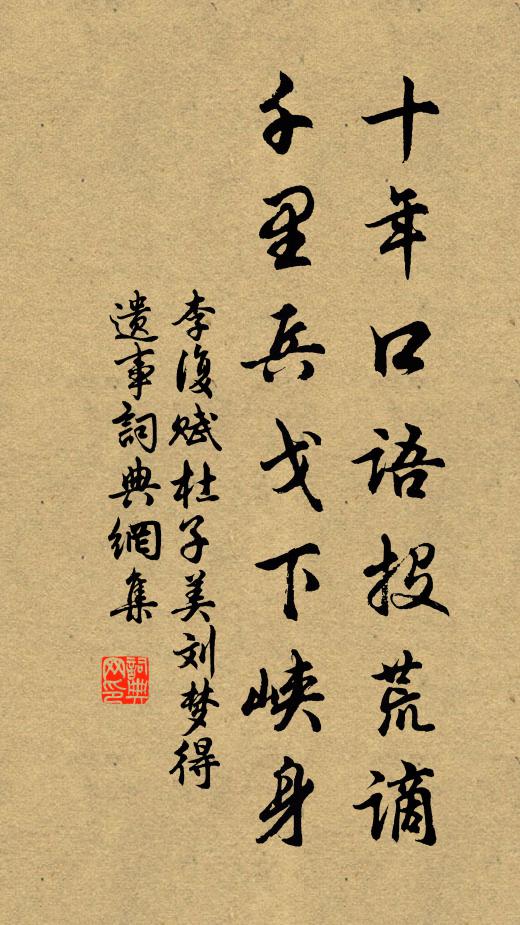 十年口語投荒謫
千里兵戈下峽身
李復賦杜子美刘梦得
遺事詞典網集
詞典網印